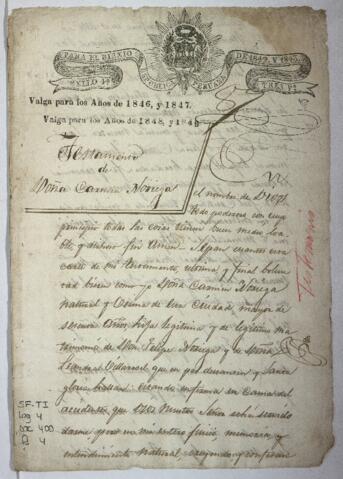 PARA EL BIENIO DE 1842 Y 1843
SELLO 4º REPUBLICA PERUANA
Valga para los Años de 1846, y 1847.
Valga para los Años de 1848, y 184
Testamento
de
Doña Carmen Noriega
el nombre de Dios
todo poderoso con cuyo
principio todas las cosas tienen buen medio loa
ble y dichoso fin Amen. Sepan cuantos esta
carta de mi testamento, ultima y final volun
tad vieren como yo Doña Carmen Noriega
natural y vecina de esta Ciudad, mayor de
sesenta años, hija legitima y de legitimo ma
trimonio de Don Felipe Noriega y de Doña
que en paz descansen y Santa
gloria hallan: estando enferma en cama del
accidente que Dios Nuestro Señor
darme pero en mi entero juicio, memoria y
entendimiento natural, creyendo y confesan
Testamento
SF-TI
Leg 4
400
f. 4